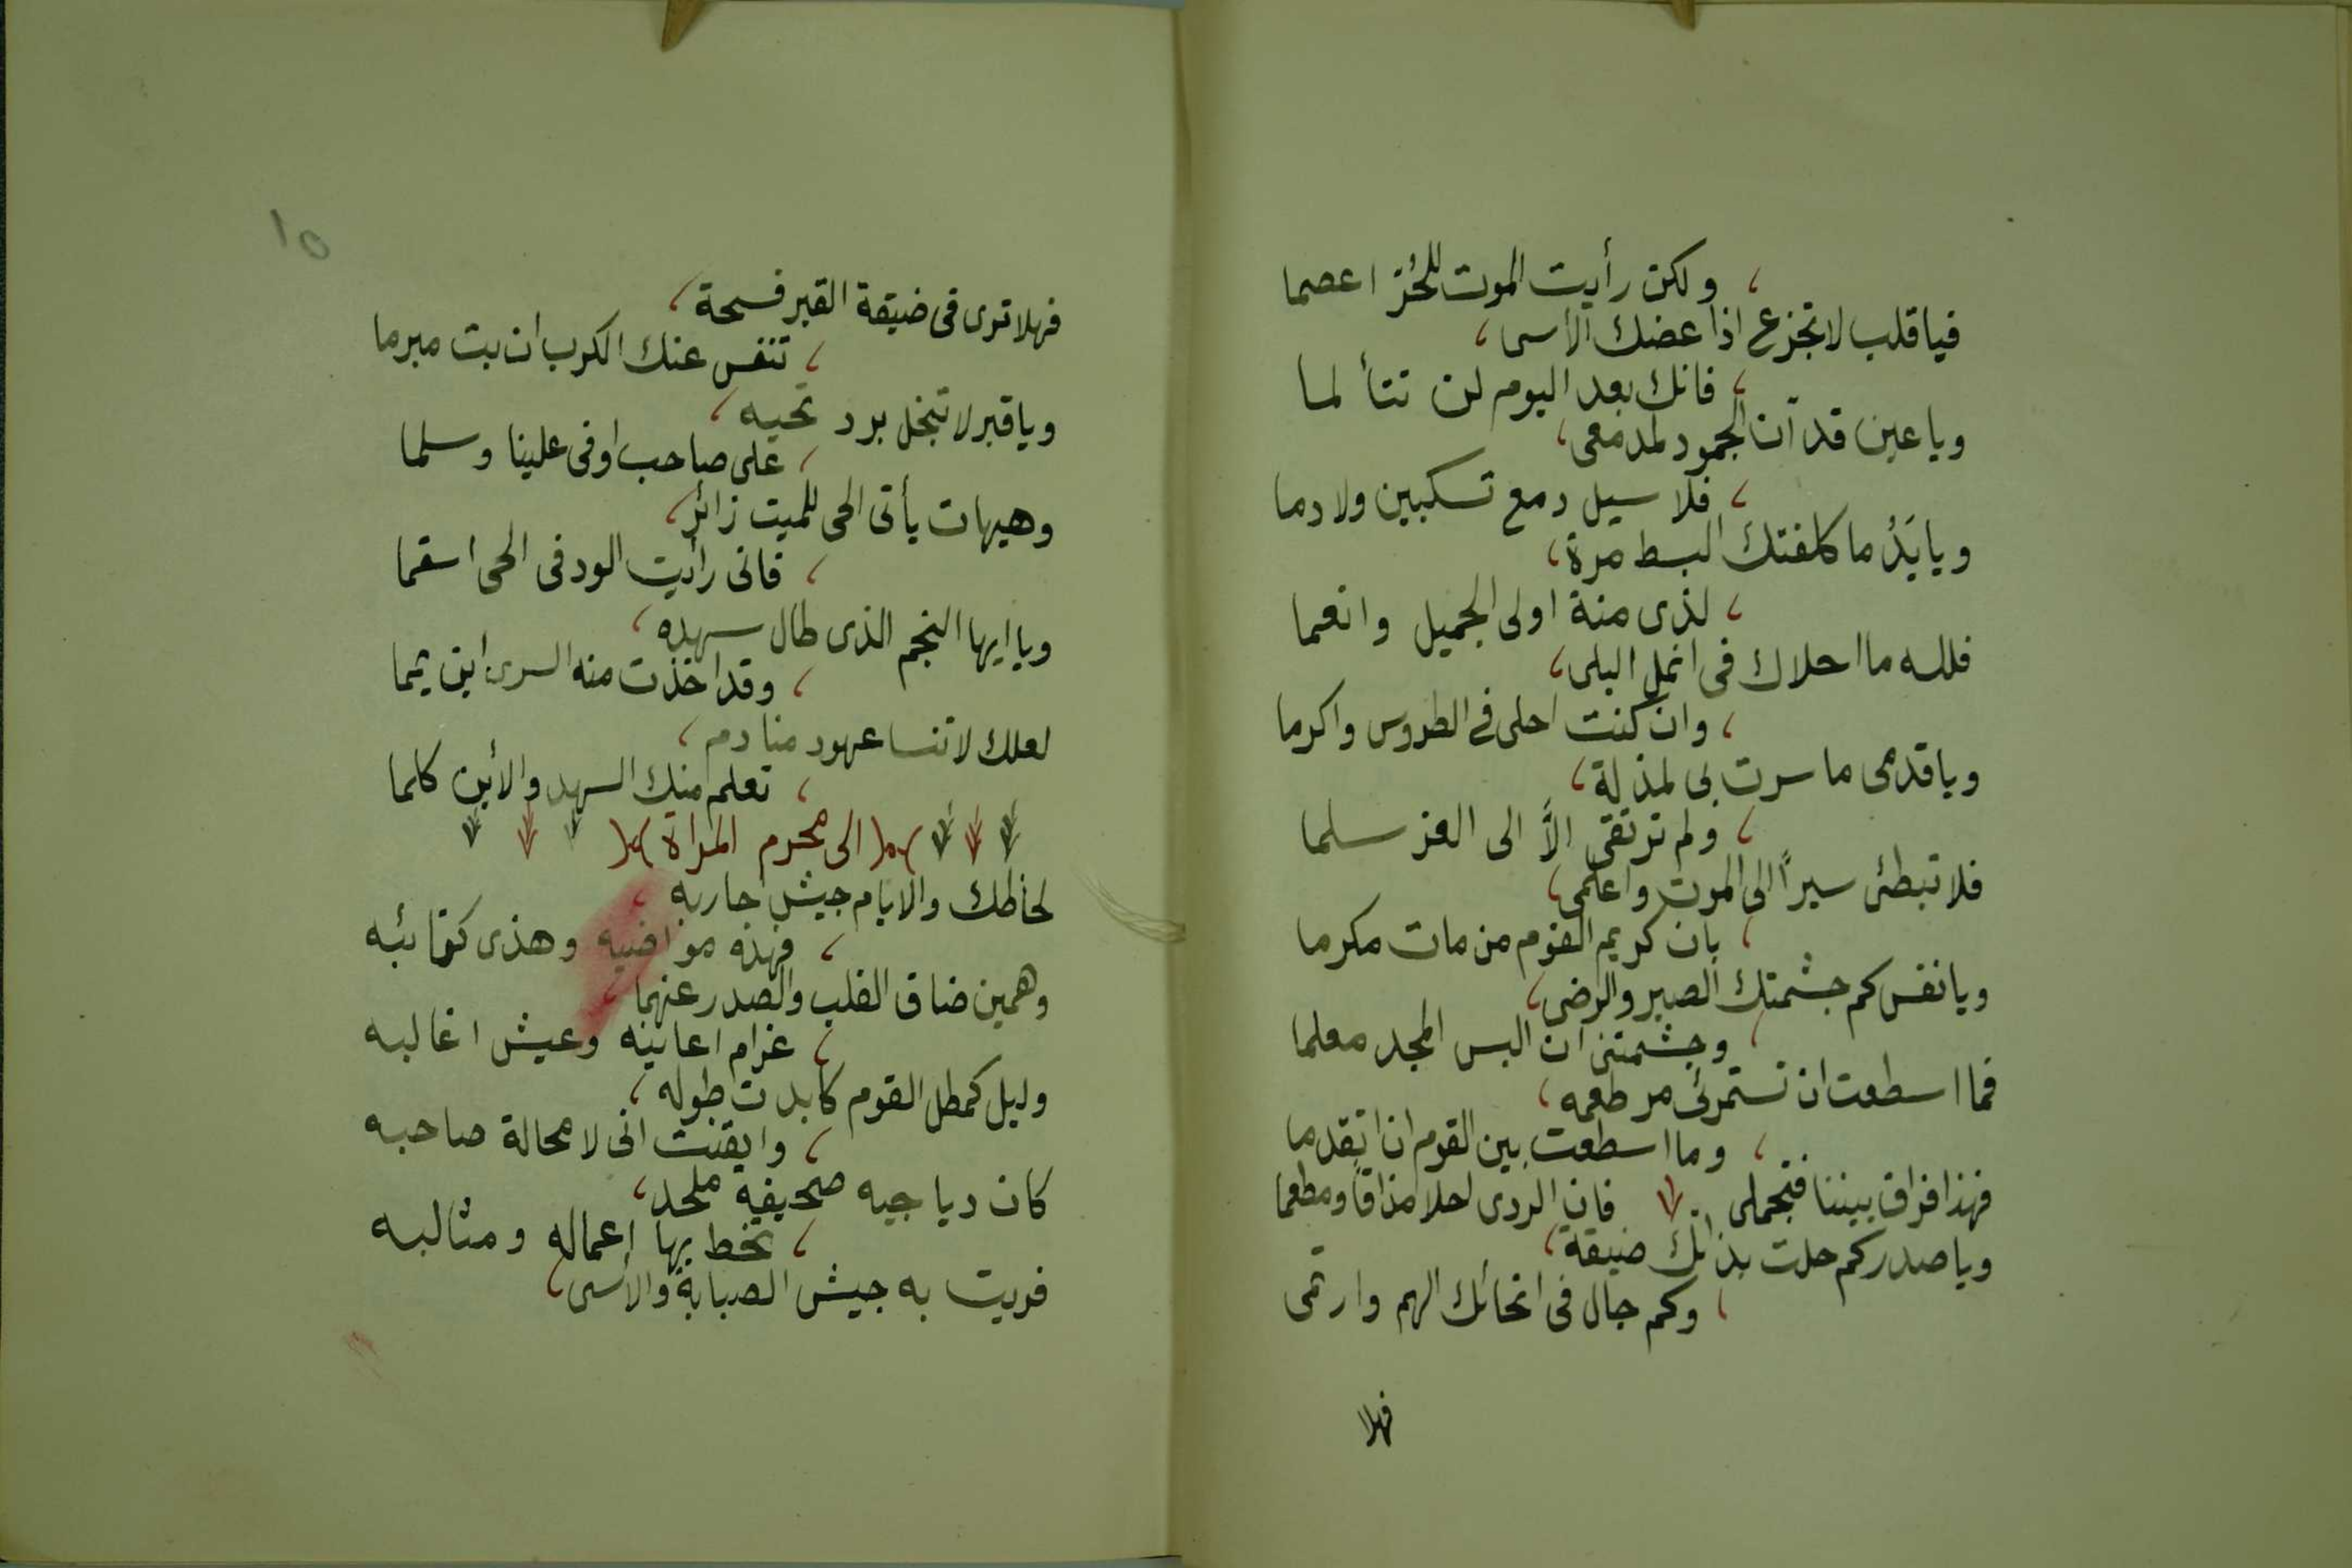 ولكن رأيت الموت للحُر اعصما
فيا قلب لا تجزع اذا عضك الأسى
فانك بعد اليوم لن تتألما
ويا عين قد آن الجمود لمدمعى
فلا سيل دمع تسكبين ولا دما
ويا يَدُ ما كلفتك البسط مرة
لذى منة اولى الجميل وانعما
فلله ما احلاك فى انمل البلى
وان كنت احلى فى الطروس واكرما
ويا قدمى ما سرت بى لمذلة
ولم ترتقى الَّا الى العز سلما
فلا تبطئى سيراً الى الموت واعلمى
بان كريم القوم من مات مكرما
ويا نفس كم جشمتك الصبر والرضى
وجشمتنى ان البس المجد معلما
فما اسطعت ان تستمرئى مر طعمه
وما اسطعت بين القوم ان اتقدما
فهذا فراق بيننا فتجملى فان الردى احلا مذاقاً ومطعما
ويا صدر كم حلت بذاتك ضيقة
وكم جال فى انحائك الهم وارتمى
فهلا
١٥
فهلا ترى فى ضيقة القبر فسحة
تنفس عنك الكرب ان بت مبرما
ويا قبر لا تبخل برد تحيه
على صاحب اوفى علينا وسلما
وهيهات يأتى الحى للميت زائر
فانى رأيت الود فى الحى اسقما
ويا ايها النجم الذى طال سهده
وقد اخذت منه السرى اين يمما
لعلك لا تنسا عهود منادم
تعلم منك السهد والأين كلما
الى محرم المراة
لحاظك والايام جيش احاربه
فهذه مواضيه وهذى كتائبه
وهمين ضاق القلب والصدر عنهما
غرام اعانيه وعيش اغالبه
وليل كمطل القوم كابدت طوله
وايقنت انى لا محالة صاحبه
كان دياجيه صحيفة ملحد
تخط بها اعماله ومثالبه
فريت به جيش الصبابة والأسى